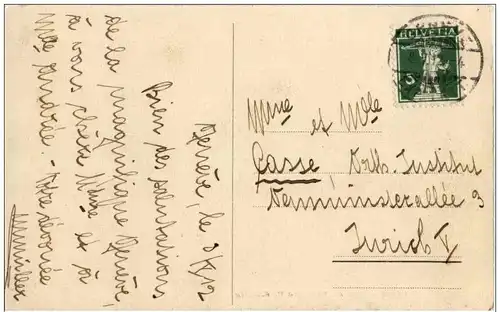 Genève, le 8/X/12
Bien des salutations
de la magnifique Genève,
à vous chère Mme et à
Mlle Andrée. - Votre dévouée
HELVETIA
5
Mme et Mlle
Gasse Orth. Institut
Neumünsterallee 3
Zurich V